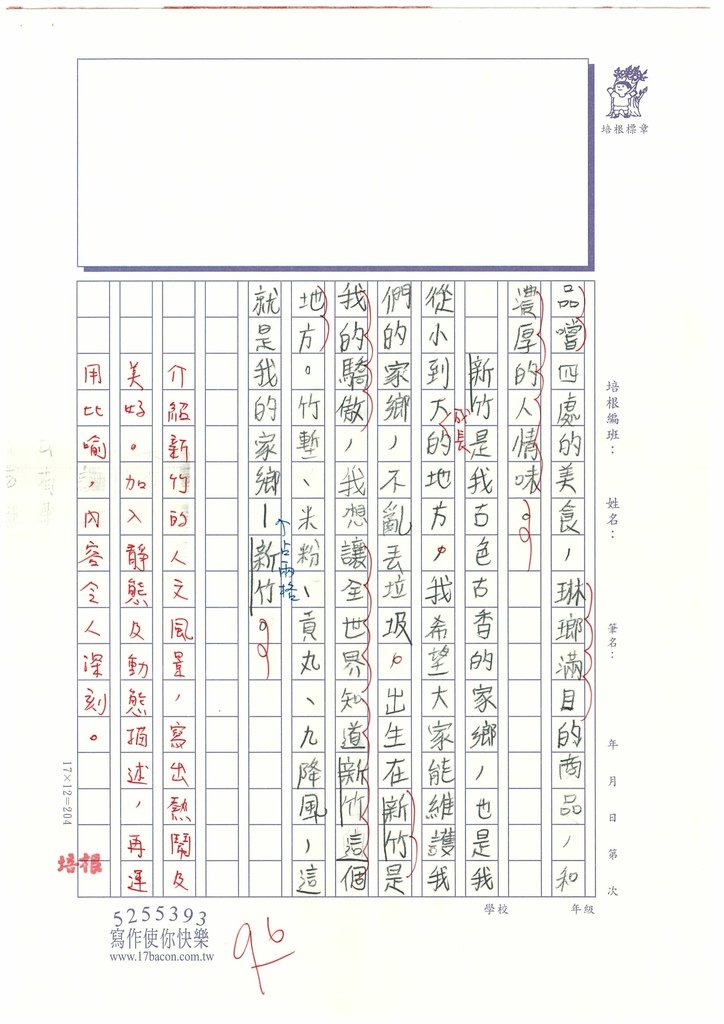 培根標章
培根編班：
姓名：
筆名：
年 月 日 第 次
品嚐四處的美食，琳瑯滿目的商品，和
濃厚的人情味。
新竹是我古色古香的家鄉，也是我
從小到大的地方，我希望大家能維護我
成長
們的家鄉，不亂丟垃圾。出生在新竹是
我的驕傲，我想讓全世界知道新竹這個
地方。竹塹、米粉、貢丸、九降風，這
就是我的家鄉—新竹。
个占兩格
介紹新竹的人文風景，寫出熱鬧及
美好。加入靜態及動態描述，再運
用比喻，內容令人深刻。
17×12=204
培根
學校
年級
5255393
寫作使你快樂
www.17bacon.com.tw
96